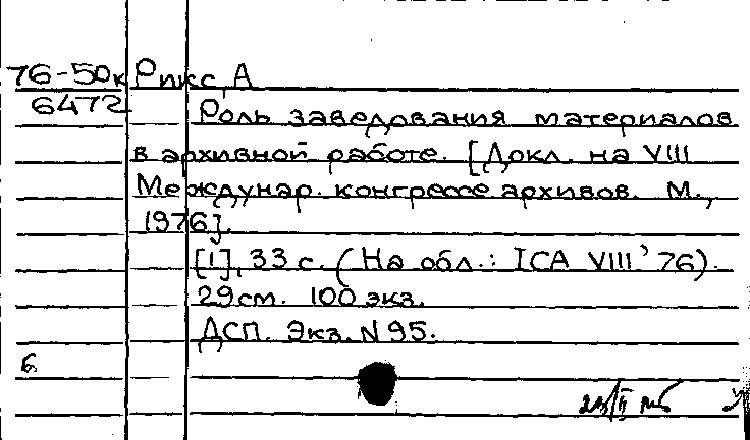 76-50к Рикс, А
6472
Роль заведования материалов
в архивной работе. [Докл. на VIII
Междунар. конгрессе архивов. М.,
1976].
[1], 33 с. (На обл.: ICA VIII'76).
29 см. 100 экз.
ДСП. Экз. N 95.
б